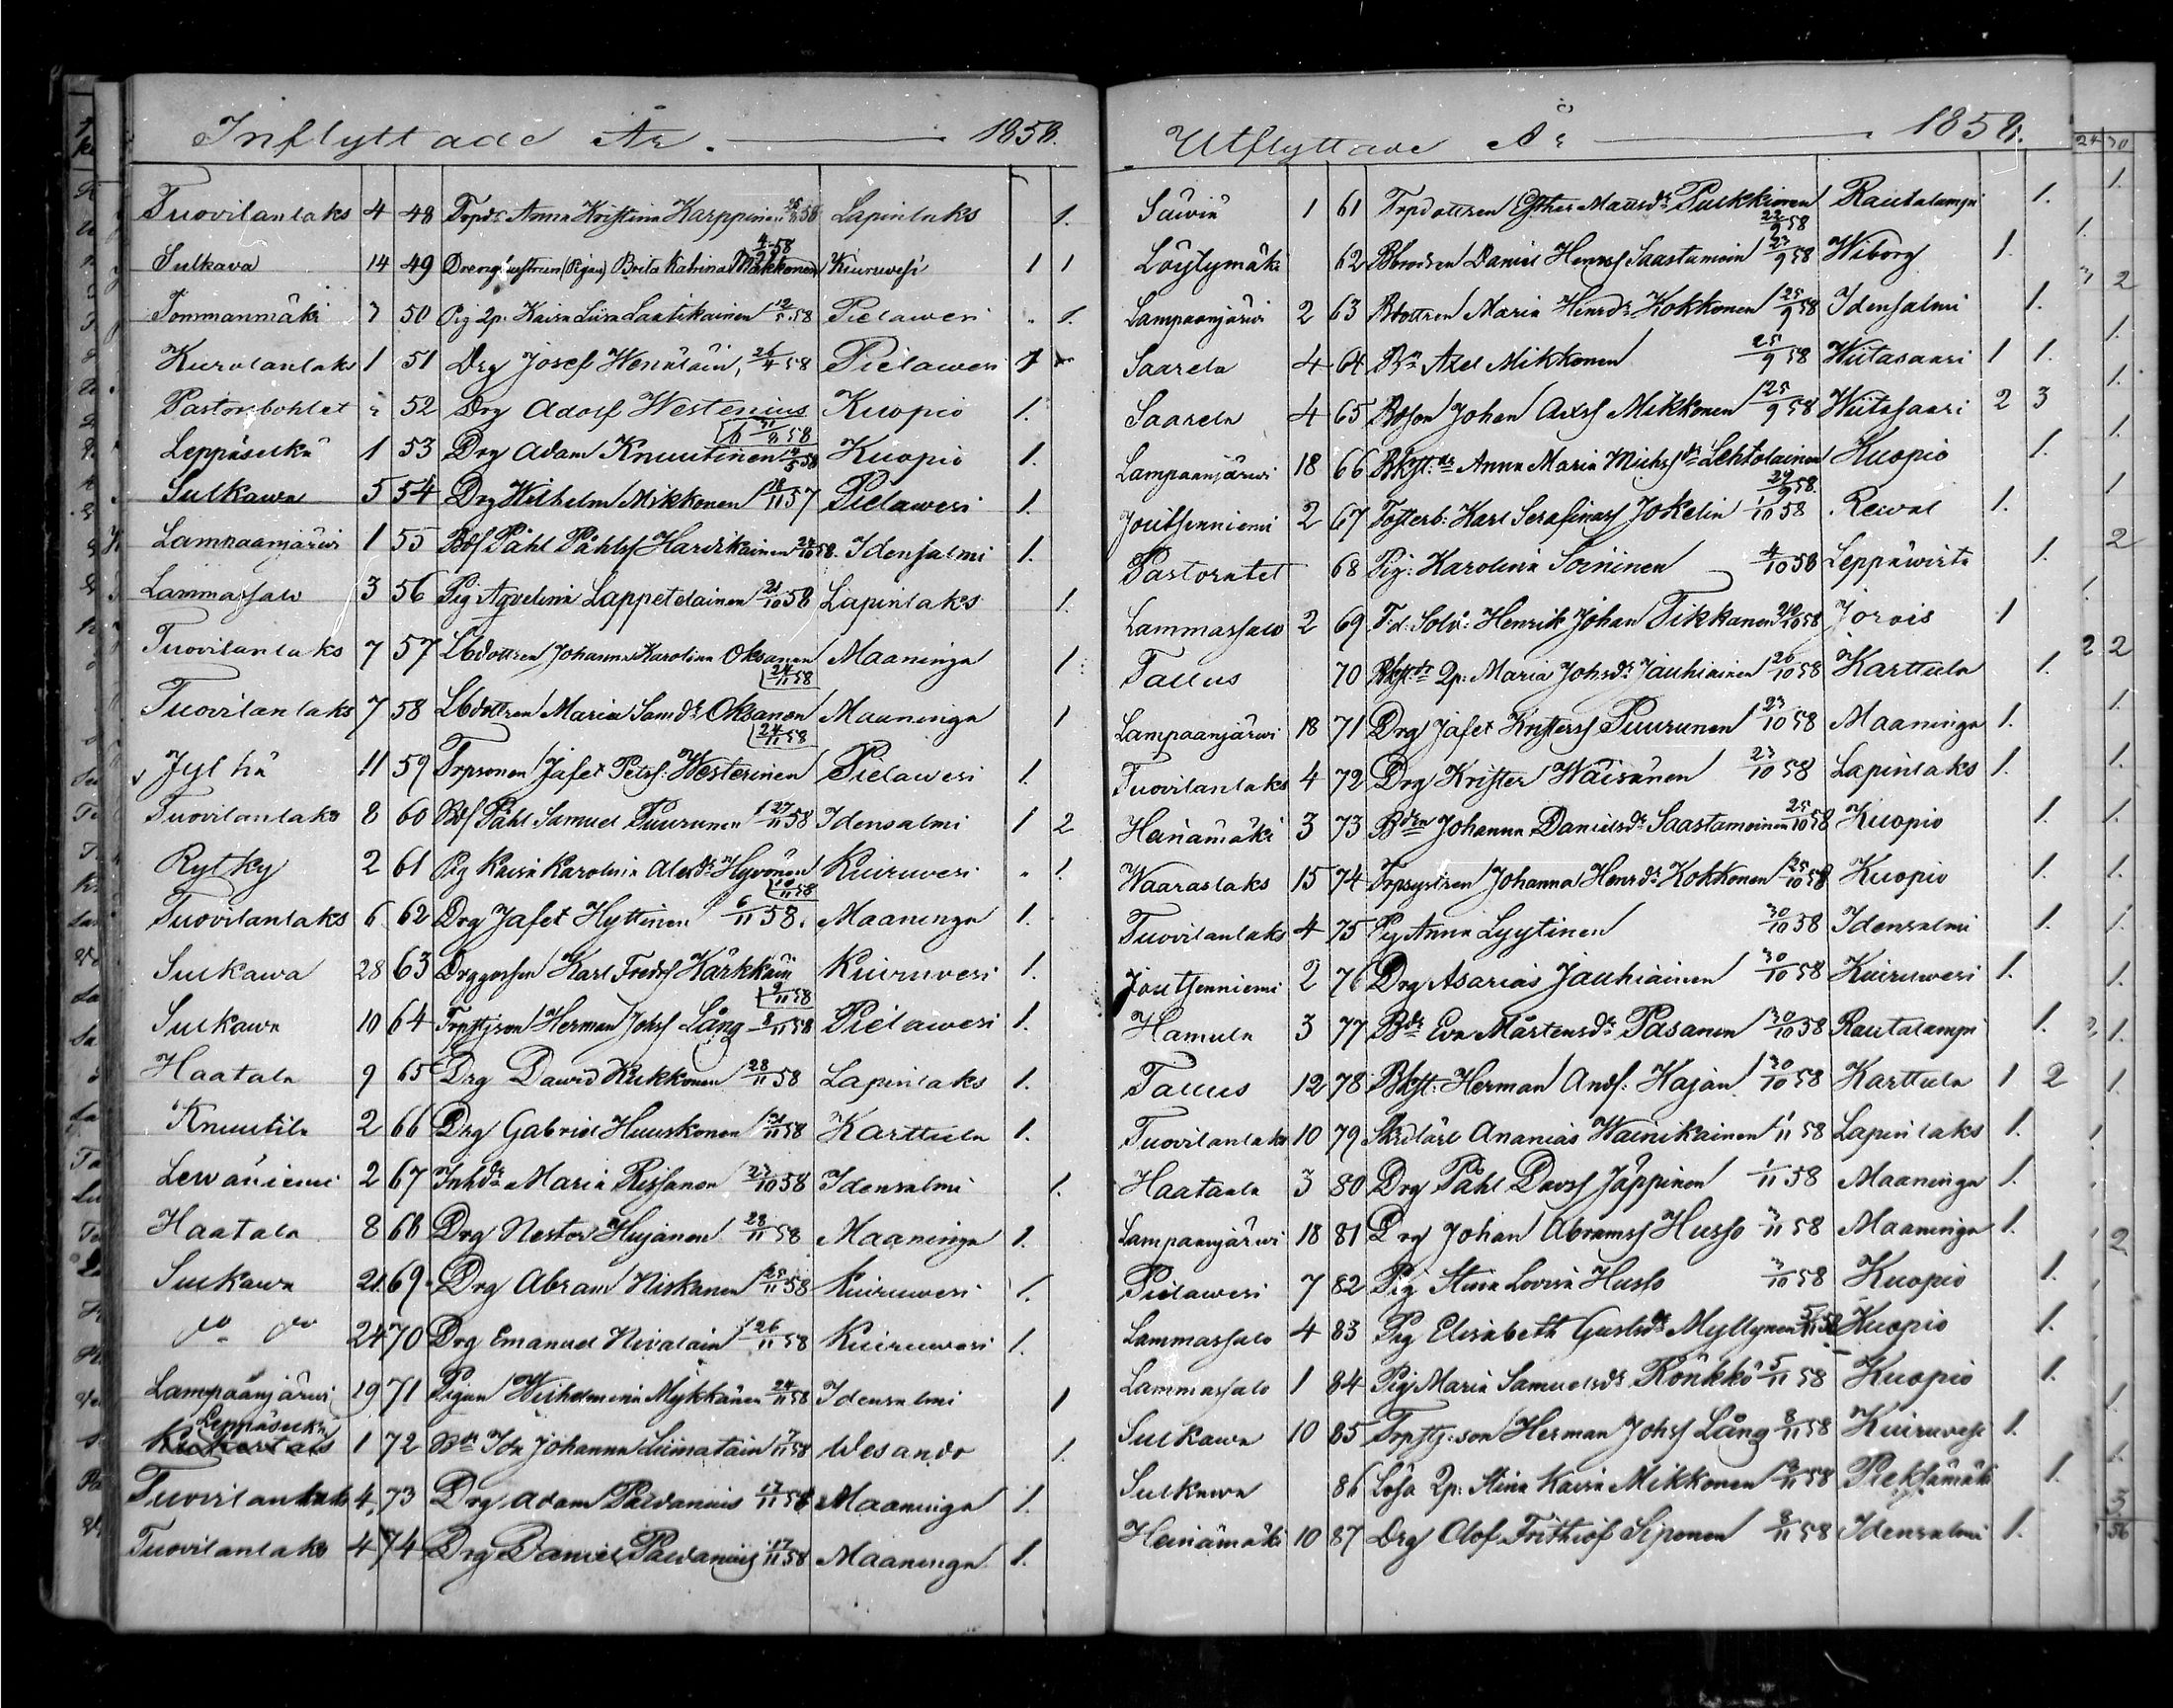 Inflyttade År. 1858.
Tuovilanlaks 4 48 Trpdr Anna Kristina Karppinen 58 Lapinlaks 1.
Sulkava 14 49 (Pigan) Brita Katrina Makkonen 58 Kiuruvesi 1 1
Tommanmäki 7 50 Pig 2p. Kaisa Lisa Laatikainen 12/5 58 Pielawesi 1.
Kurolanlaks 1 51 Drg Josef Wenäläin, 26/4 58 Pielawesi 1
Pastorsbohlet 52 Drg Adolf Westenius Kuopio 1.
58
Leppäselkä 1 53 Drg Adam Knuutinen 58 Kuopio 1.
Sulkawa 5 54 Drg Wilhelm Mikkonen 18/11 57 Pielawesi 1.
Lampaanjärwi 1 55 Bds Påhl Påhlss Hardikainen 24/10 58. Idensalmi 1.
Lammassalo 3 56 Pig Agvelina Lappetelainen 21/10 58 Lapinlaks 1.
Tuovilanlaks 7 57 Lbdottren Johanna Karolina Oksanen Maaninga 1
24/11 58
Tuovilanlaks 7 58 Lbdottren Maria Samdr Oksanen Maaninga 1
24/11 58
Jylhä 11 59 Trpsonen Jafet Petrs: Westerinen Pielawesi 1.
Tuovilanlaks 8 60 Bds Påhl Samuel Puurunen 27/11 58 Idensalmi 1 2
Rytky 2 61 Pig Kaisa Karolina Alexdr Hyvönen Kiuruwesi 1.
10/11 58
Tuovilanlaks 6 62 Drg Jafet Hyttinen 6/11 58. Maaninga 1.
Sulkawa 28 63 Drggossen Karl Fredss Kärkkäin Kiuruvesi 1.
9/11 58
Sulkawa 10 64 Trpstjson Herman Johss Lång 8/11 58 Pielawesi 1.
Haatala 9 65 Drg Dawid Kukkonen 28/11 58 Lapinlaks 1.
Knuutila 2 66 Drg Gabriel Huuskonen 21/11 58 Karttula 1.
Lewäniemi 2 67 Inhdr Maria Rissanen 23/10 58 Idensalmi 1.
Haatala 8 68 Drg Nestor Hujanen 28/11 58 Maaninga 1.
Sulkawa 21 69 Drg Abram Niskanen 25/11 58 Kiuruwesi 1.
do do 24 70 Drg Emanuel Nivalain 26/11 58 Kiuruwesi 1.
Lampaanjärwi 19 71 Pigan Wilhelmina Mykkänen 24/11 58 Idensalmi 1
Leppäselkä
1 72 Ida Johanna Liimatain 58 Wesando 1.
Tuovilanlaks 4 73 Drg Adam Paldanius 17/11 58 Maaninga 1.
Tuovilanlaks 4 74 Drg Daniel Paldanius 17/11 58 Maaninga 1.
Utflyttade År 1858.
Säwiä 1 61 Trpdottren Esther Mattsdr Pulkkinen Rautalampi 1.
22/9 58
Löytymäki 62 Bbrodren Daniel Henrss Saastamoin 23/9 58 Wiborg 1.
Lampaanjärwi 2 63 Bdottren Maria Henrdr Kokkonen 25/9 58 Idensalmi 1.
Saarela 4 64 Bn Axel Mikkonen 25/9 58 Wiitasaari 1 1.
Saarela 4 65 Bdson Johan Axlss Mikkonen 25/9 58 Wiitasaari 2 3
Lampaanjärwi 18 66 Anna Maria Michsdr Lehtolainen Kuopio 1.
29/9 58.
Joutsenniemi 2 67 Fosterb: Karl Serafimss Jokelin 1/10 58 Rewal 1.
Pastoratet 68 Pig: Karolina Soininen 4/10 58 Leppäwirta 1.
Lammassalo 2 69 F:d. Sold: Henrik Johan Tikkanen 20/10 58 Jorois 1
Tallus 70 2p. Maria Johsdr Jauhiainen 20/10 58 Karttula 1.
Lampaanjärwi 18 71 Drg Jafet Kristerss Puurunen 23/10 58 Maaninga 1.
Tuovilanlaks 4 72 Drg Krister Wäisänen 23/10 58 Lapinlaks 1.
Heinämäki 3 73 Johanna Danielsdr Saastamoinen 25/10 58 Kuopio 1.
Waaraslaks 15 74 Trpsystren Johanna Henrdr Kokkonen 25/10 58 Kuopio 1.
Tuovilanlaks 4 75 Pig Anna Lyytinen 30/10 58 Idensalmi 1.
Joutsenniemi 2 76 Drg Asarias Jauhiainen 30/10 58 Kiuruwesi 1.
Hamula 3 77 Bdr Eva Mårtensdr Pasanen 30/10 58 Rautalampi 1.
Tallus 12 78 Bkst: Herman Ands: Hajan 30/10 58 Karttula 1 2
Tuovilanlaks 10 79 Skrdlärl Ananias Wainikainen 1/11 58 Lapinlaks 1.
Haatala 3 80 Drg Påhl Davss Jäppinen 1/11 58 Maaninga 1.
Lampaanjärwi 18 81 Drg Johan Abramss Husso 3/11 58 Maaninga 1.
Pielawesi 7 82 Pig Stina Lovisa Husso 3/10 58 Kuopio 1.
Lammassalo 4 83 Pig Elisabeth Gustsdr Myllynen 5/11 58 Kuopio 1.
Lammassalo 1 84 Pig Maria Samuelsdr Rönkkö 5/11 58 Kuopio 1.
Sulkawa 10 85 Trpstj:son Herman Johss Lång 8/11 58 Kiuruvesi 1.
Sulkawa 86 Lösa 2p: Stina Kaisa Mikkonen 58 Pieksämäki 1.
Heinämäki 10 87 Drg Olof Frithiof Siponen 8/11 58 Idensalmi 1.